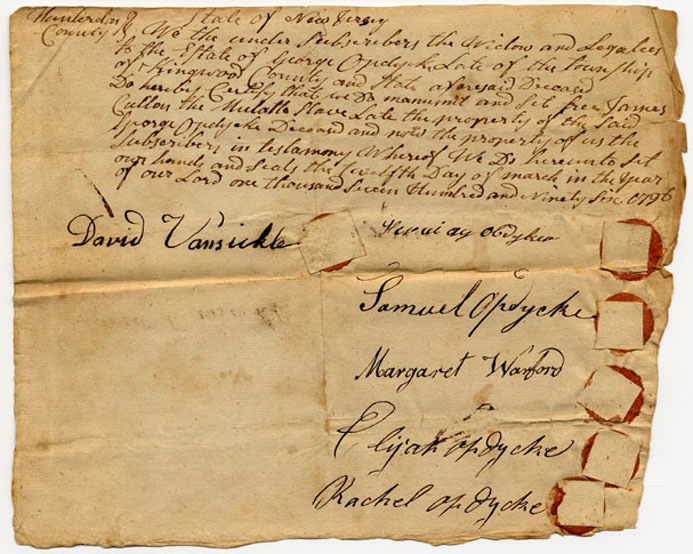 Hunterdon } State of New Jersey
County } We the under Subscribers the Widow and Legatees
to the Estate of George Opdycke Late of the Township
of Kingwood County and State aforesaid Deceased
Do hereby Certify that we Do manumit and Set free James
Cullon the Mulatto Slave Late the property of the Said
George Opdycke Deceased and now the property of us the
Subscribers in testamony Whereof We Do hereunto Set
our hands and Seals the twelfth Day of march in the Year
of our Lord one thousand Seven Hundred and Ninety Six 1796
David Vansickle
Obdyke
Samuel Opdycke
Margaret Warford
Elijah Opdycke
Rachel Opdycke